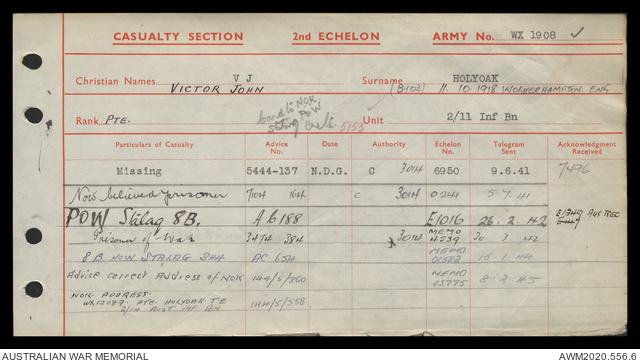 CASUALTY SECTION 2nd ECHELON ARMY No. WX 1908
Christian Names V J Surname HOLYOAK
VICTOR JOHN (B103) 11.10.1918 WOLVERHAMPTON. ENG
Rank PTE. Unit 2/11 Inf Bn
card to NOK
POW
Stalag 5153
Particulars of Casualty Advice No. Date Authority Echelon No. Telegram Sent Acknowledgment Received
Missing 5444-137 N.D.G. C 3014 6950 9.6.41 7496
Now believed prisoner 7104 164 C 3014 0241 5-7.41
POW Stalag 8B. A6188 E1016 26.2.42 E1349 AUS REC
Prisoner of War 3474 384 3014 MEMO 4539 20 3 42
8B NOW STALAG 344 AC 654 MEMO 01582 15-1-44
Advise correct Address of NOK 144/5/360 MEMO 05775 8-2-45
NOK. ADDRESS.
WX12089. PTE HOLYOAK T E 144/5/358
2/14 AUST INF BN
AUSTRALIAN WAR MEMORIAL AWM2020.556.6